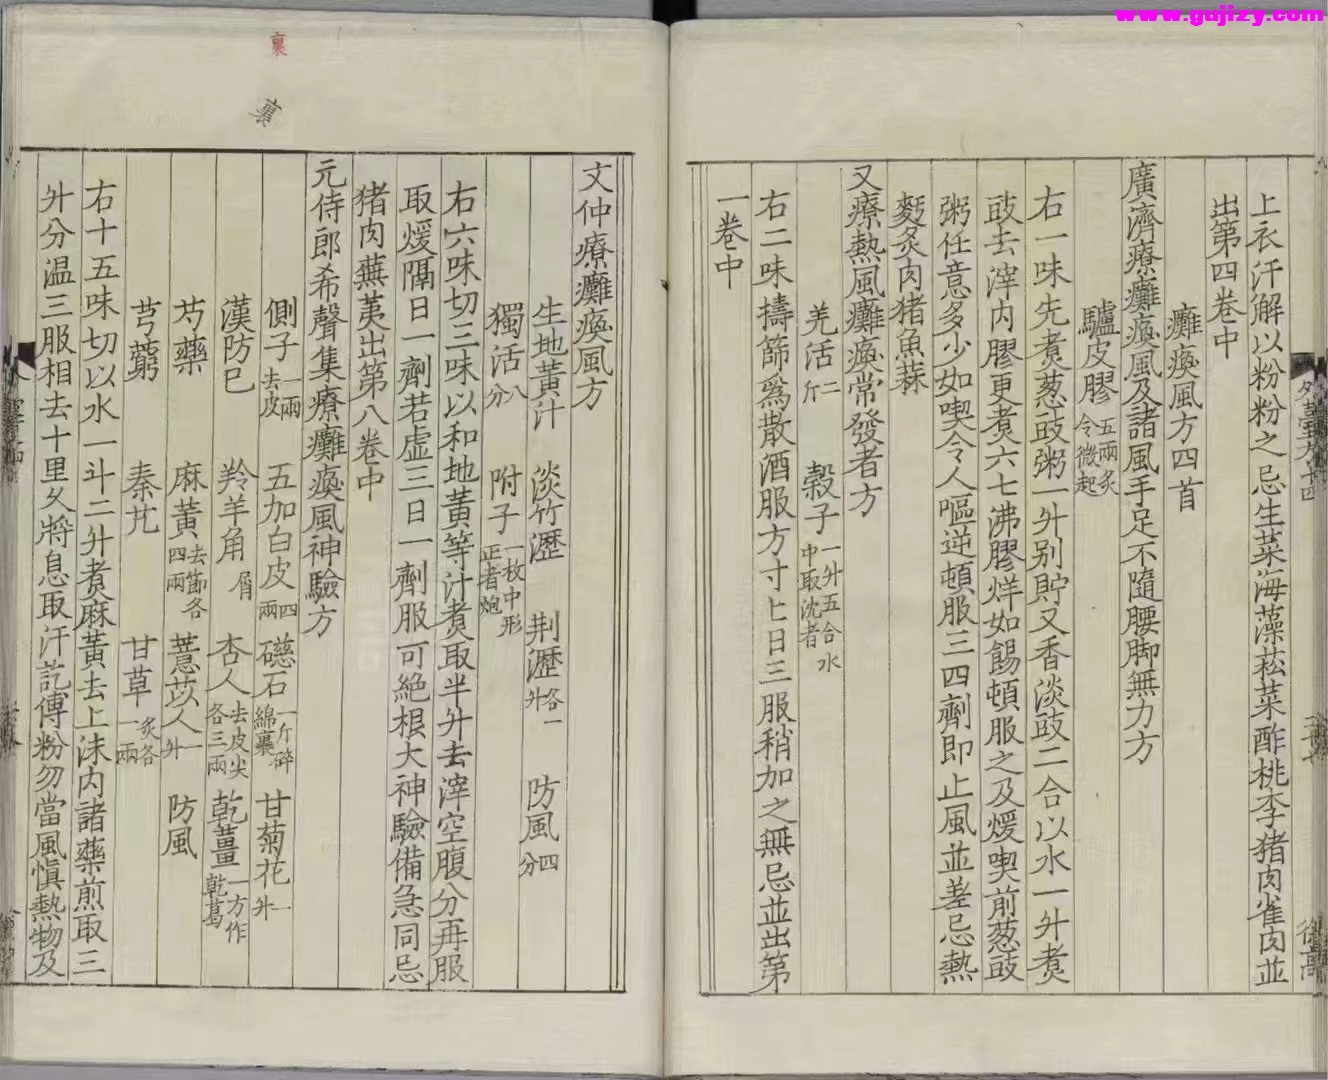 www.gujizy.com
上衣汗解以粉粉之忌生菜海藻菘菜酢桃李猪肉雀肉並
出第四卷中
癱瘓風方四首
廣濟療癱瘓風及諸風手足不隨腰脚無力方
驢皮膠五兩炙令微起
右一味先煮葱豉粥一升别貯又香淡豉二合以水一升煮
豉去滓内膠更煮六七沸膠烊如餳頓服之及煖喫前葱豉
粥任意多少如喫令人嘔逆頓服三四劑即止風並差忌熱
麪炙肉猪魚蒜
又療熱風癱瘓常發者方
羌活二斤 榖子一升五合水中取沈者
右二味擣篩爲散酒服方寸匕日三服稍加之無忌並出第
一卷中
外臺卷十四
徐高
文仲療癱瘓風方
生地黄汁 淡竹瀝 荆瀝各一升 防風四分
獨活八分 附子一枚中形正者炮
右六味切三味以和地黄等汁煮取半升去滓空腹分再服
取煖隔日一劑若虚三日一劑服可絶根大神驗備急同忌
猪肉蕪荑出第八卷中
元侍郎希聲集療癱瘓風神驗方
側子一兩去皮 五加白皮四兩 磁石一斤碎綿裹 甘菊花一升
漢防巳 羚羊角屑 杏人去皮尖各三兩 乾薑一方作乾葛
芍藥 麻黄去節各四兩 薏苡人一升 防風
芎藭 秦艽 甘草炙各一兩
右十五味切以水一斗二升煮麻黄去上沫内諸藥煎取三
升分温三服相去十里久將息取汗訖傅粉勿當風慎熱物及
裹
裹